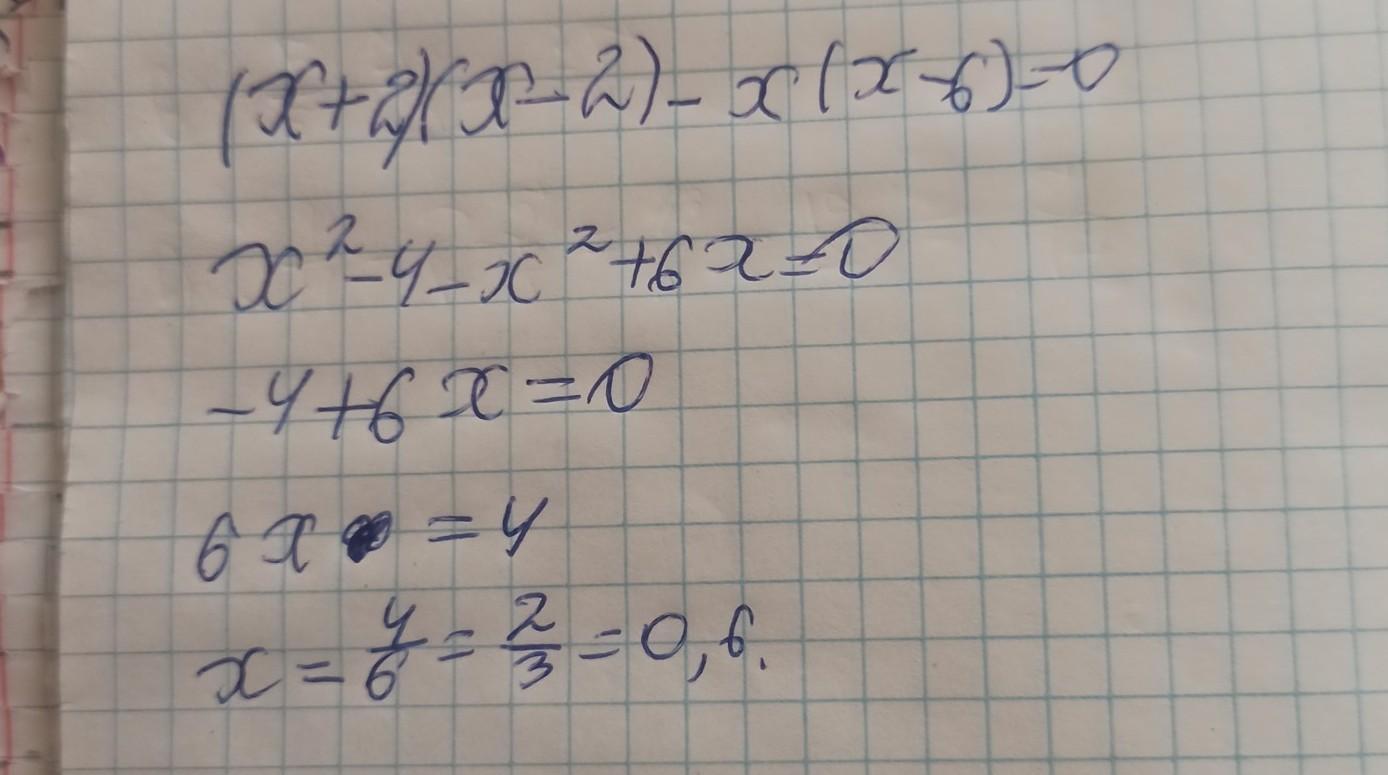 (x+2)(x-2)-x(x-6)=0
x²-4-x²+6x=0
-4+6x=0
6x=4
x=4/6=2/3=0,6.